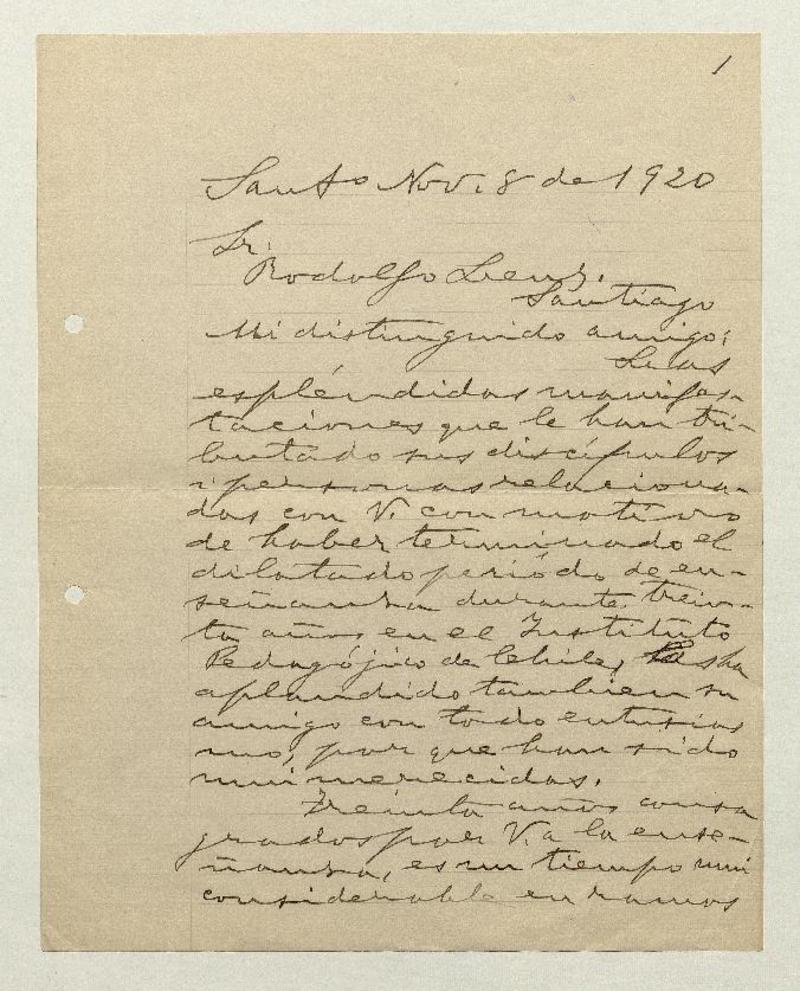 1
Santo Nov. 8 de 1920
Sr.
Rodolfo Lenz.
Santiago
Mi distinguido amigo:
Las
espléndidas manifes-
taciones que le han tri-
butado sus discípulos
i personas relaciona-
das con V. con motivo
de haber terminado el
dilatado período de en-
señanza durante trein-
ta años en el Instituto
Pedagójico de Chile, las ha
aplaudido tambien su
amigo con todo entusias
mo, por que han sido
mui merecidas.
Treinta años consa
grados por V. a la ense-
ñanza, es un tiempo mui
considerable en ramos